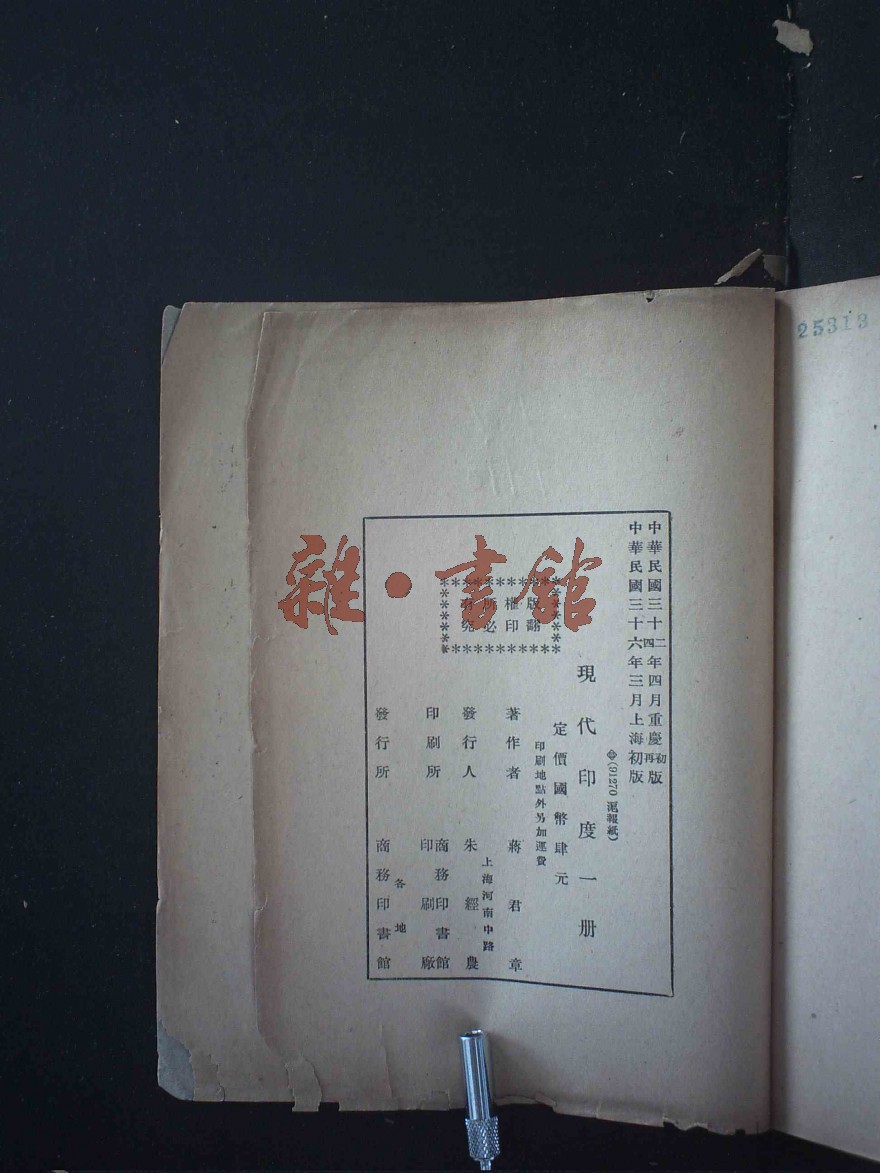 25313
中華民國三十二四年四月重慶初再版
中華民國三十六年三月上海初版
(91270 滬報紙)
現代印度一册
定價國幣肆元
印刷地點外另加運費
版權所有
翻印必究
著作者 蔣君章
上海河南中路
發行人 朱經農
印刷所 商務印書館
印刷廠
各地
發行所 商務印書館
雜·書館